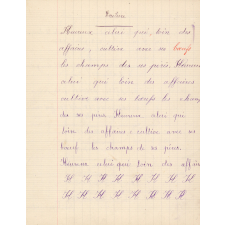 Écriture
Heureux celui qui, loin des
affaires, cultive avec ses bœufs
les champs de ses pères. Heureux
celui qui loin des affaires
cultive avec ses bœufs les champs
de ses pères. Heureux celui qui
loin des affaires, cultive avec ses
bœufs les champs de ses pères.
Heureux celui qui loin des affaires
H H H H H H H H
H H H H H H H H